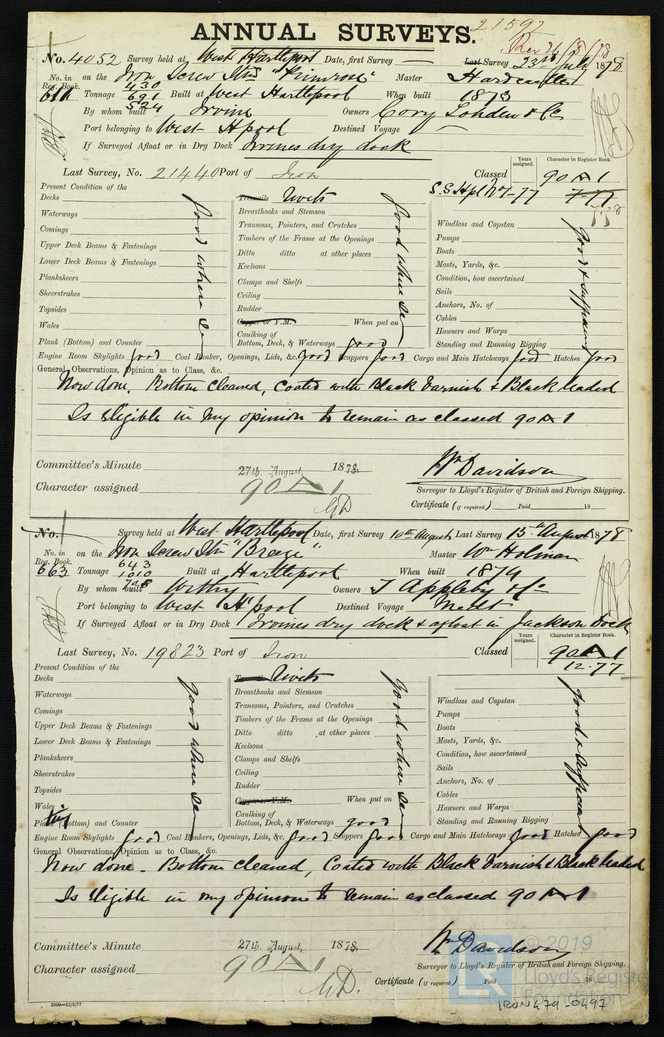 21597
ANNUAL SURVEYS.
No. 4052 Survey held at West Hartlepool Date, first Survey — Last Survey 23rd July 1878
No. in Reg. Book. on the Iron Screw Str "Primrose" Master
611 Tonnage 430 681 524 Built at West Hartlepool When built 1873
By whom built Irvine Owners Cory London & Co
Port belonging to West Hpool Destined Voyage
If Surveyed Afloat or in Dry Dock Irvines dry dock
Years assigned. Character in Register Book.
Last Survey, No. 21440 Port of Iron Classed 90 A 1
S.S. Hpl No 7-77
Present Condition of the
Decks
Waterways
Comings
Upper Deck Beams & Fastenings
Lower Deck Beams & Fastenings
Planksheers
Sheerstrakes
Topsides
Wales
Plank (Bottom) and Counter
good where seen
Treenails Rivets
Breasthooks and Stemson
Transoms, Pointers, and Crutches
Timbers of the Frame at the Openings
Ditto ditto at other places
Keelsons
Clamps and Shelfs
Ceiling
Rudder
Copper or Y.M. When put on
Caulking of
Bottom, Deck, & Waterways good
good where seen
Windlass and Capstan
Pumps
Boats
Masts, Yards, &c.
Condition, how ascertained
Sails
Anchors, No. of
Cables
Hawsers and Warps
Standing and Running Rigging
good & sufficient
Engine Room Skylights good Coal Bunker, Openings, Lids, &c. good Scuppers good Cargo and Main Hatchways good Hatches good
General Observations, Opinion as to Class, &c.
Now done. Bottom cleaned, Coated with Black Varnish & Black leaded
Is eligible in my opinion to remain as classed 90 A 1
Committee's Minute 27th August 1878.
Character assigned 90 A 1
Wm Davidson
Surveyor to Lloyd's Register of British and Foreign Shipping.
Certificate (if required) Paid 18
No. Survey held at West Hartlepool Date, first Survey 10th August, Last Survey 15th August 1878
No. in Reg. Book. on the Iron Screw Str "Breeze" Master Wm Holman
663 Tonnage 643 1010 Built at Hartlepool When built 1874
By whom built Withy Owners T Appleby
Port belonging to West H'pool Destined Voyage Malt
If Surveyed Afloat or in Dry Dock Irvines dry dock & afloat in Jackson Dock
Years assigned. Character in Register Book.
Last Survey, No. 19823 Port of Iron Classed 90 A 1
12.77
Present Condition of the
Decks
Waterways
Comings
Upper Deck Beams & Fastenings
Lower Deck Beams & Fastenings
Planksheers
Sheerstrakes
Topsides
Wales
Plank (Bottom) and Counter
good where seen
Rivets
Breasthooks and Stemson
Transoms, Pointers, and Crutches
Timbers of the Frame at the Openings
Ditto ditto at other places
Keelsons
Clamps and Shelfs
Ceiling
Rudder
When put on
Caulking of
Bottom, Deck, & Waterways good
good where seen
Windlass and Capstan
Pumps
Boats
Masts, Yards, &c.
Condition, how ascertained
Sails
Anchors, No. of
Cables
Hawsers and Warps
Standing and Running Rigging
good & sufficient
Engine Room Skylights good Coal Bunkers, Openings, Lids, &c. good Scuppers good Cargo and Main Hatchways good Hatches good
General Observations, Opinion as to Class, &c.
Now done. Bottom cleaned, Coated with Black Varnish & Black leaded
Is eligible in my opinion to remain as classed 90 A 1
Committee's Minute 27th August 1878.
Character assigned 90 A 1
Wm Davidson
Surveyor to Lloyd's Register of British and Foreign Shipping.
Certificate (if required) Paid 18
© 2019
Lloyd's Register
Foundation
IRON479-0497